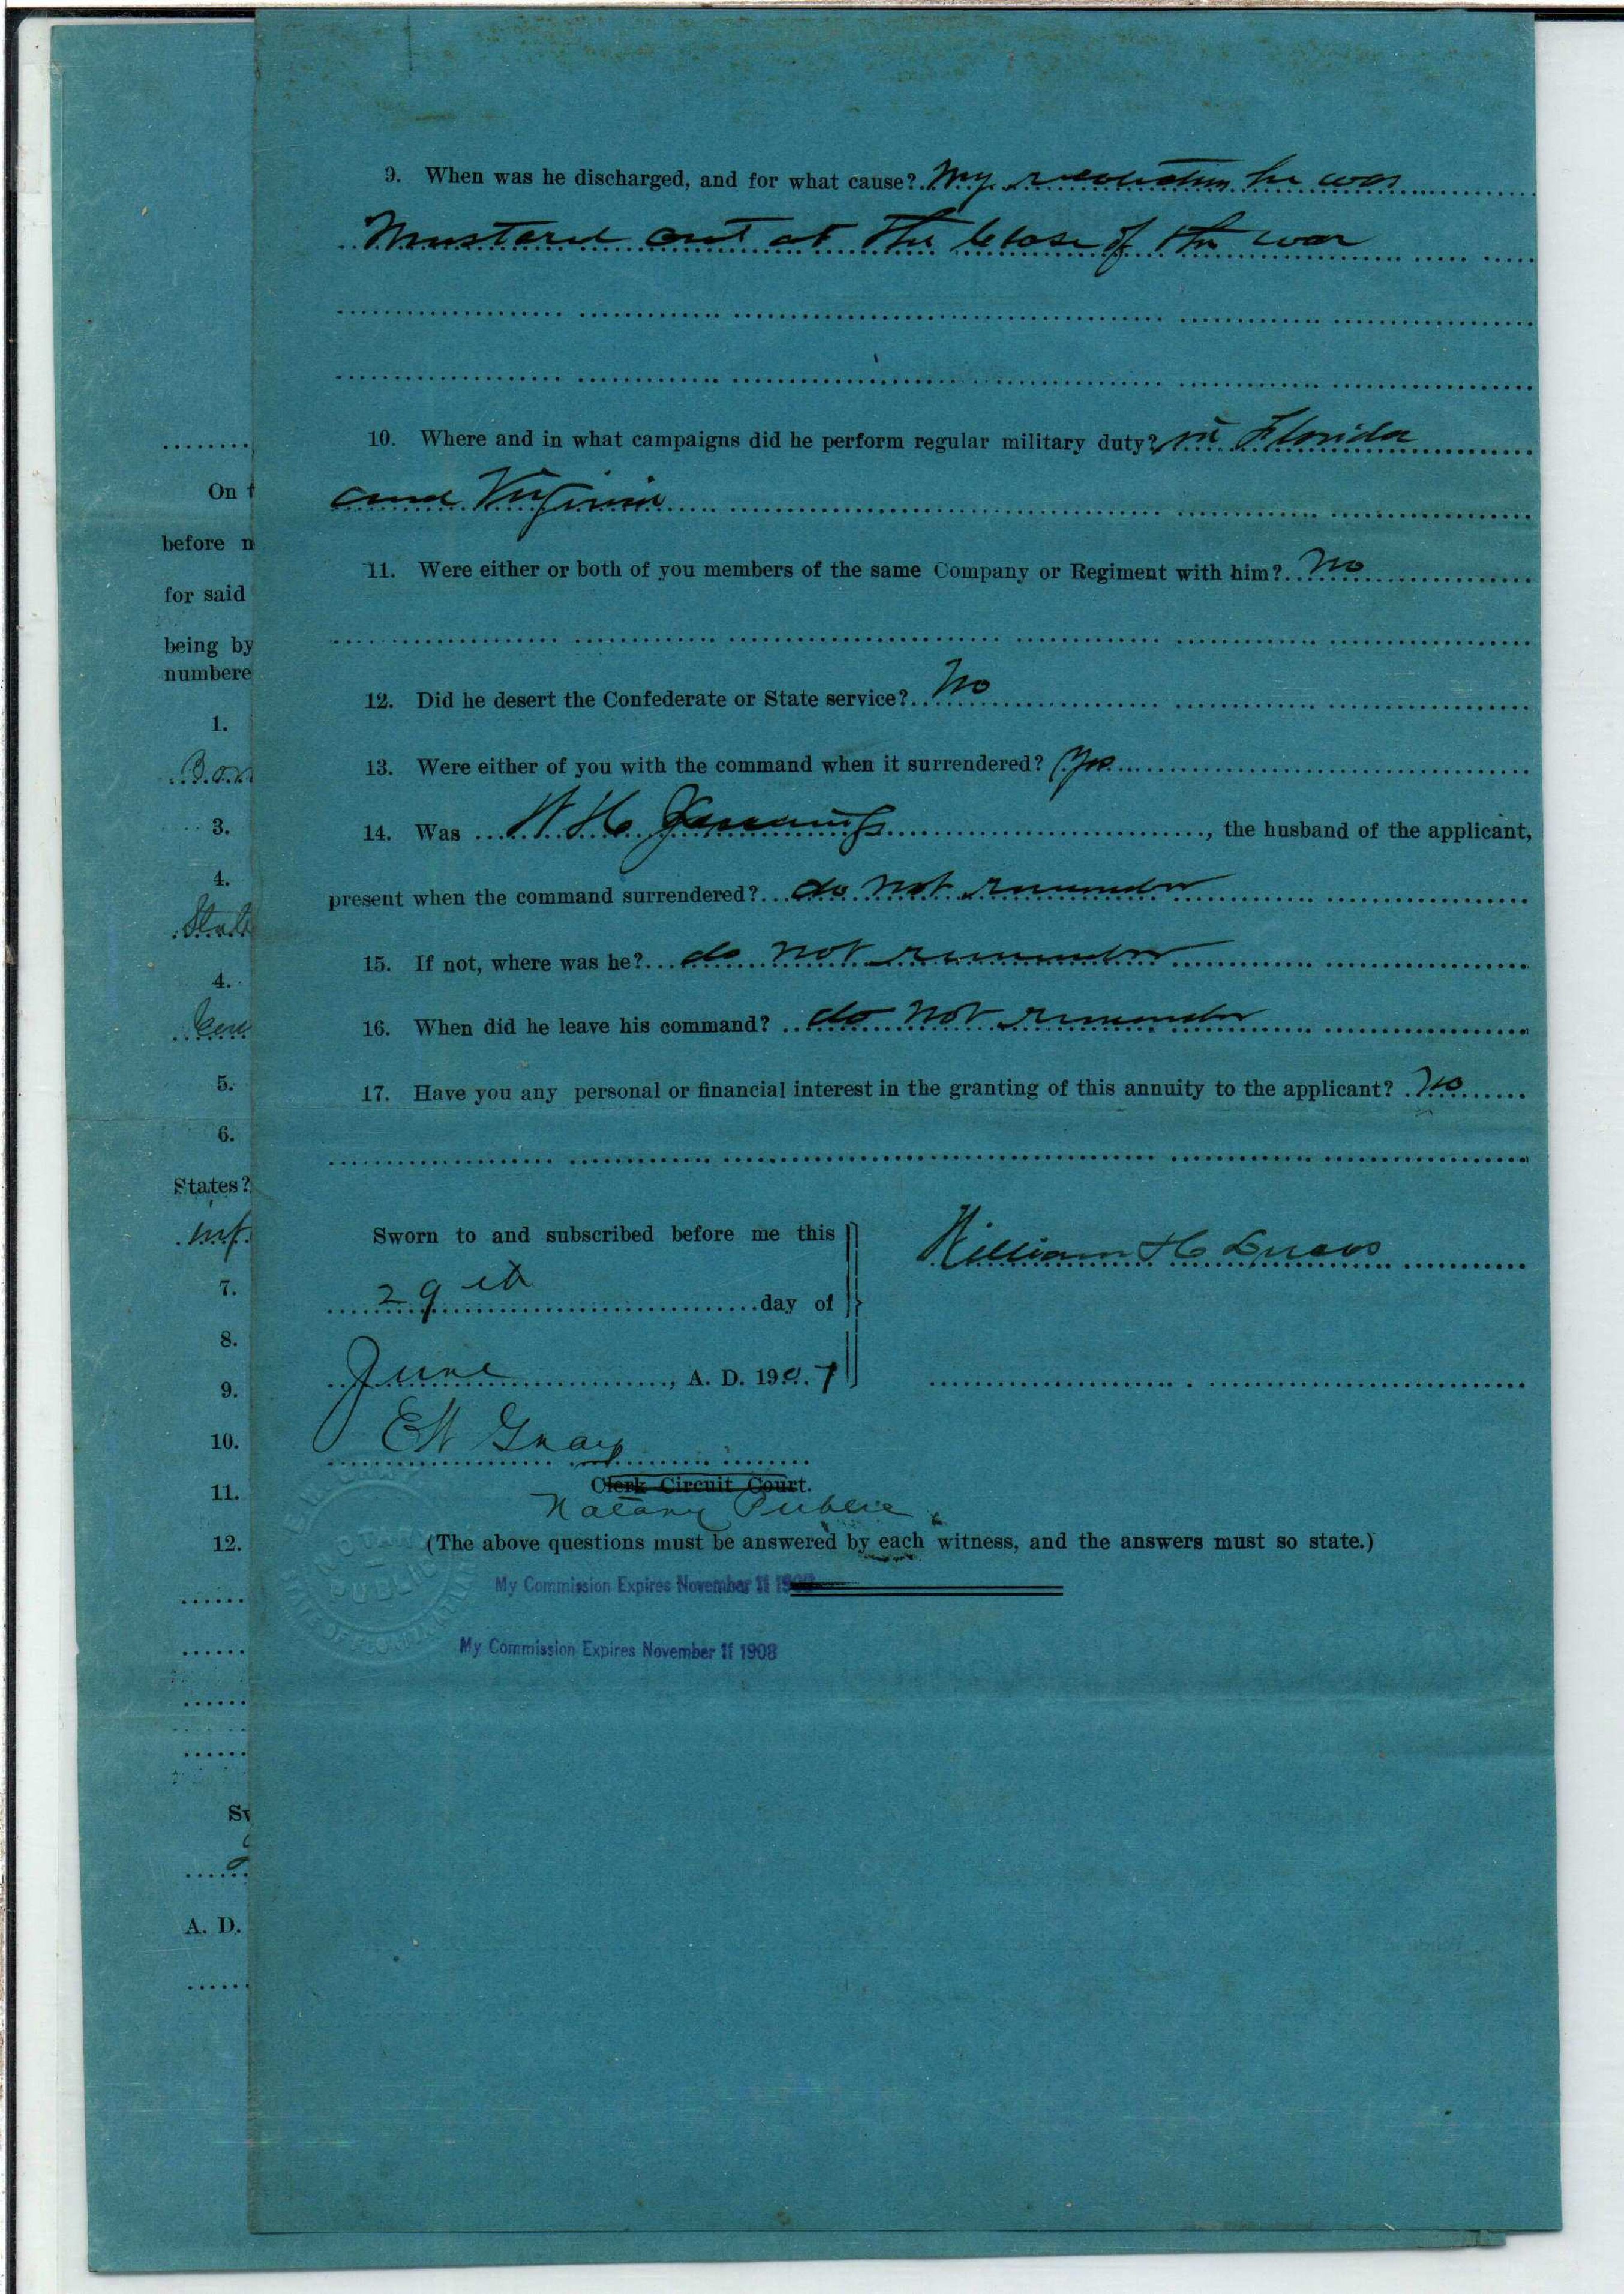 9. When was he discharged, and for what cause? My recolection he was
Mustered out at the Close of the war
10. Where and in what campaigns did he perform regular military duty? in Florida
and Virginia
11. Were either or both of you members of the same Company or Regiment with him? No
12. Did he desert the Confederate or State service? No
13. Were either of you with the command when it surrendered? Yes
14. Was W H , the husband of the applicant,
present when the command surrendered? do not remember
15. If not, where was he? do not remember
16. When did he leave his command? do not remember
17. Have you any personal or financial interest in the granting of this annuity to the applicant? No
Sworn to and subscribed before me this
William H Lucas
29th day of
June, A. D. 1907
E W Gray
Clerk Circuit Court.
Notary Public
(The above questions must be answered by each witness, and the answers must so state.)
My Commission Expires November 11
My Commission Expires November 11 1908
E. W. GRAY
NOTARY
PUBLIC
STATE OF FLORIDA AT LARGE
On t
before n
for said
being by
numbere
1.
3.
4.
4.
5.
6.
States?
inf.
7.
8.
9.
10.
11.
12.
Sv
A. D.